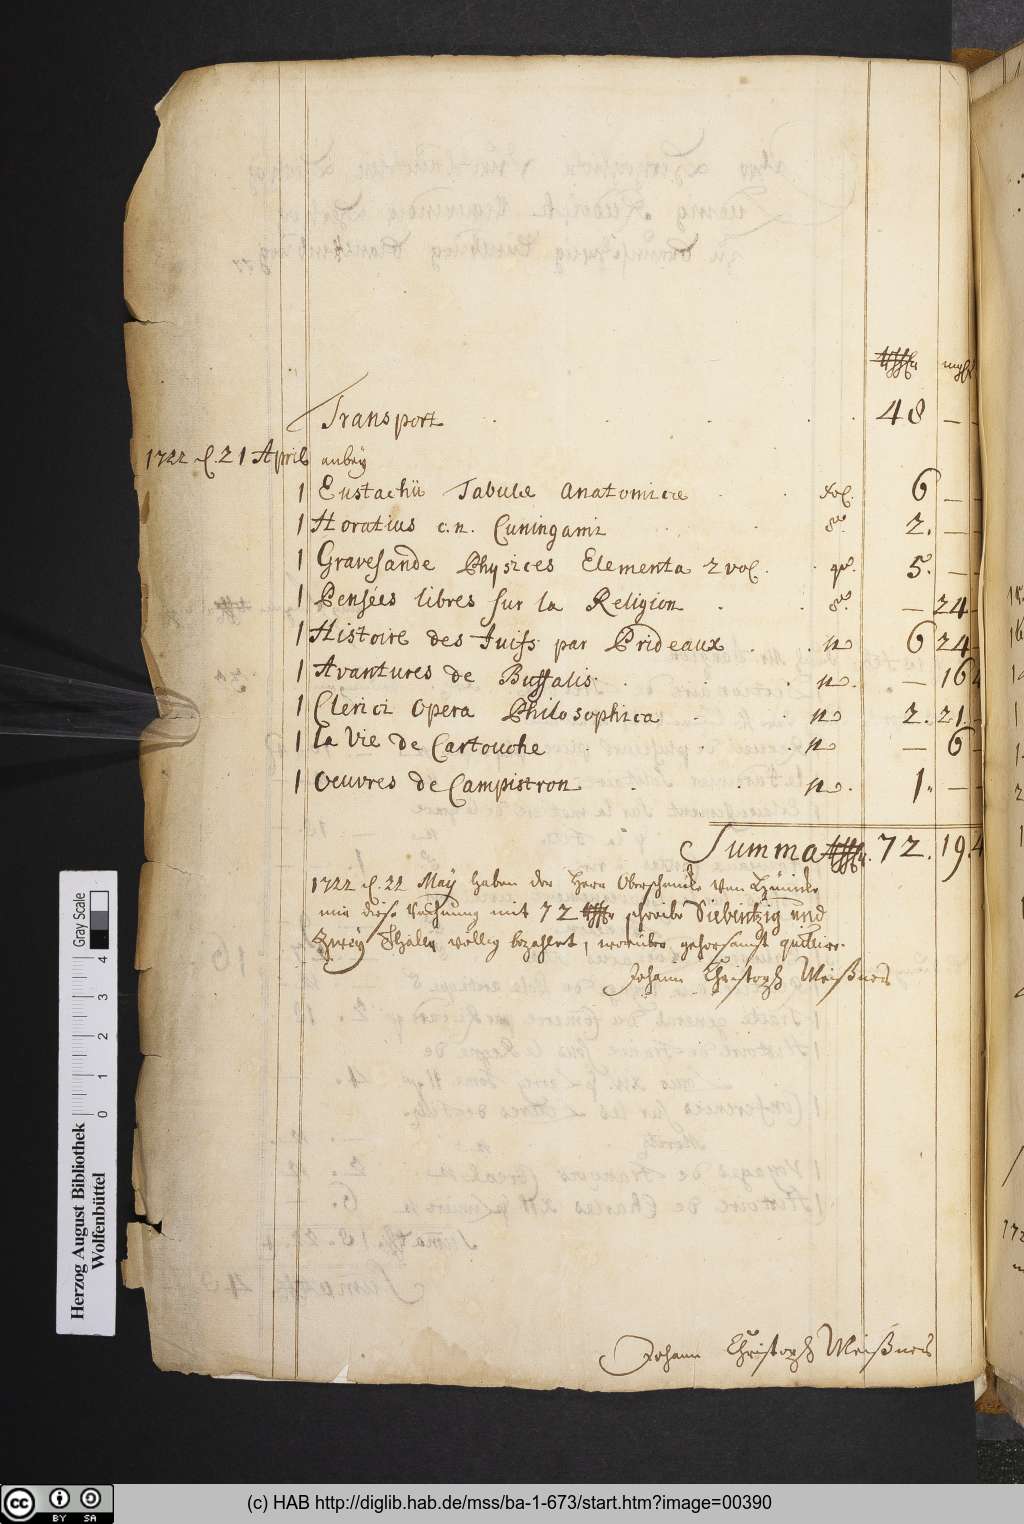 Transport 48 — —
1722 d. 21 April anbey
1 Eustachii Tabulæ Anatomicæ fol. 6 — —
1 Horatius c. n. Cuningamii 8vo. 2. — —
1 Gravesande Physices Elementa 2 vol. 4to. 5. — —
1 Pensées libres sur la Religion 8vo. — 24 -
1 Histoire des Juifs par Prideaux 6 24 -
1 Avantures de Buffalis — 16
1 Clerici Opera Philosophica 2. 21
1 la Vie de Cartouche — 6 -
1 Oeuvres de Campistron 1. — —
Summa 72. 19. 4
1722 d. 22 May haben der Herr Oberschencke von
mir diese Rechnung mit 72 schreibe Siebentzig und
Zwey Thaler völlig bezahlet, worüber gehorsamst quittire.
Johann Christoph Meißner
Johann Christoph Meißner
Gray Scale
0 1 2 3 4
Herzog August Bibliothek
Wolfenbüttel
(c) HAB http://diglib.hab.de/mss/ba-1-673/start.htm?image=00390
cc BY SA